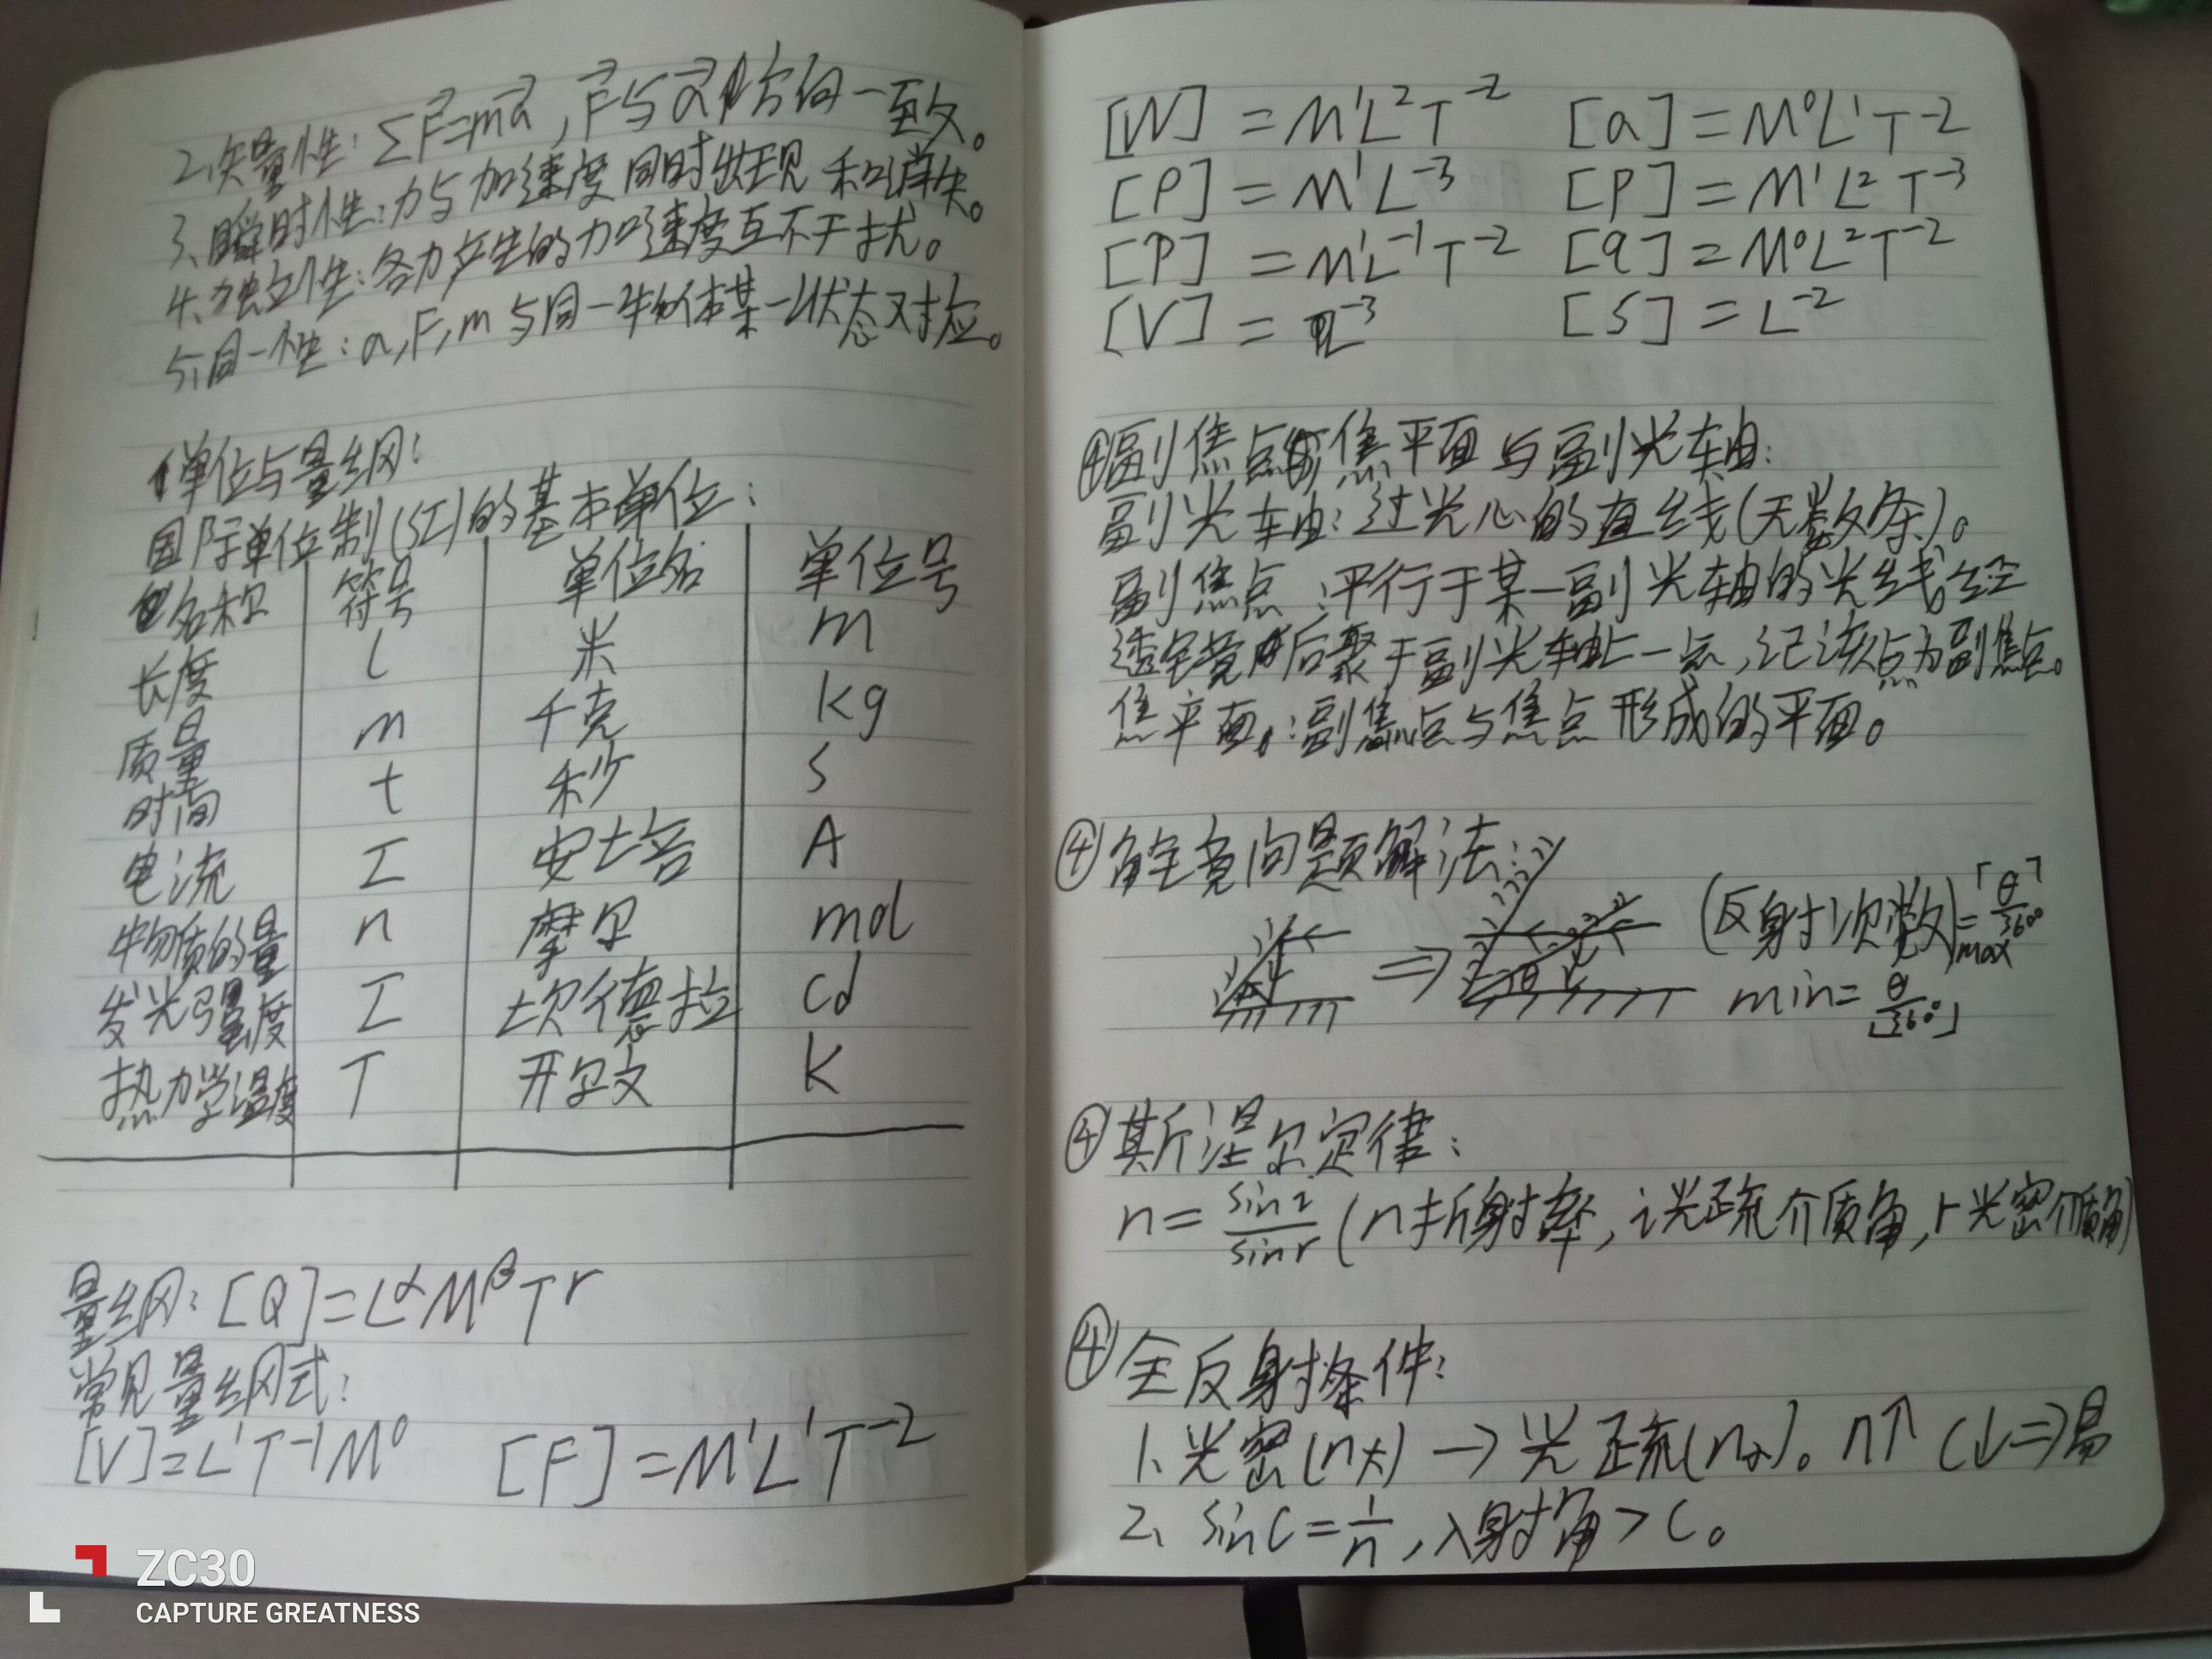 2、矢量性：ΣF⃗=ma⃗，F⃗与a⃗方向一致。
3、瞬时性：力与加速度同时出现和消失。
4、独立性：各力产生的加速度互不干扰。
5、同一性：a,F,m与同一物体某一状态对应。
单位与量纲：
国际单位制(SI)的基本单位：
名称 符号 单位名 单位号
长度 l 米 m
质量 m 千克 kg
时间 t 秒 s
电流 I 安培 A
物质的量 n 摩尔 mol
发光强度 I 坎德拉 cd
热力学温度 T 开尔文 K
量纲：[Q]=L^α M^β T^r
常见量纲式：
[V]=L¹T⁻¹M⁰ [F]=M¹L¹T⁻²
ZC30
CAPTURE GREATNESS
[W]=M¹L²T⁻² [a]=M⁰L¹T⁻²
[ρ]=M¹L⁻³ [P]=M¹L²T⁻³
[P]=M¹L⁻¹T⁻² [q]=M⁰L²T⁻²
[V]=L⁻³ [S]=L⁻²
④副焦点焦平面与副光轴：
副光轴：过光心的直线(无数条)。
副焦点：平行于某一副光轴的光线经
透镜后聚于副光轴上一点，记该点为副焦点。
焦平面：副焦点与焦点形成的平面。
④角镜问题解法：
⇒ (反射次数)max=⌈θ/360°⌉
min=⌊θ/360°⌋
④斯涅尔定律：
n=sin i/sin r (n折射率，i光疏介质角，r光密介质角)
④全反射条件：
1、光密(n大)→光疏(n小)。n↑ C↓⇒易
2、sinC=1/n，入射角>C。